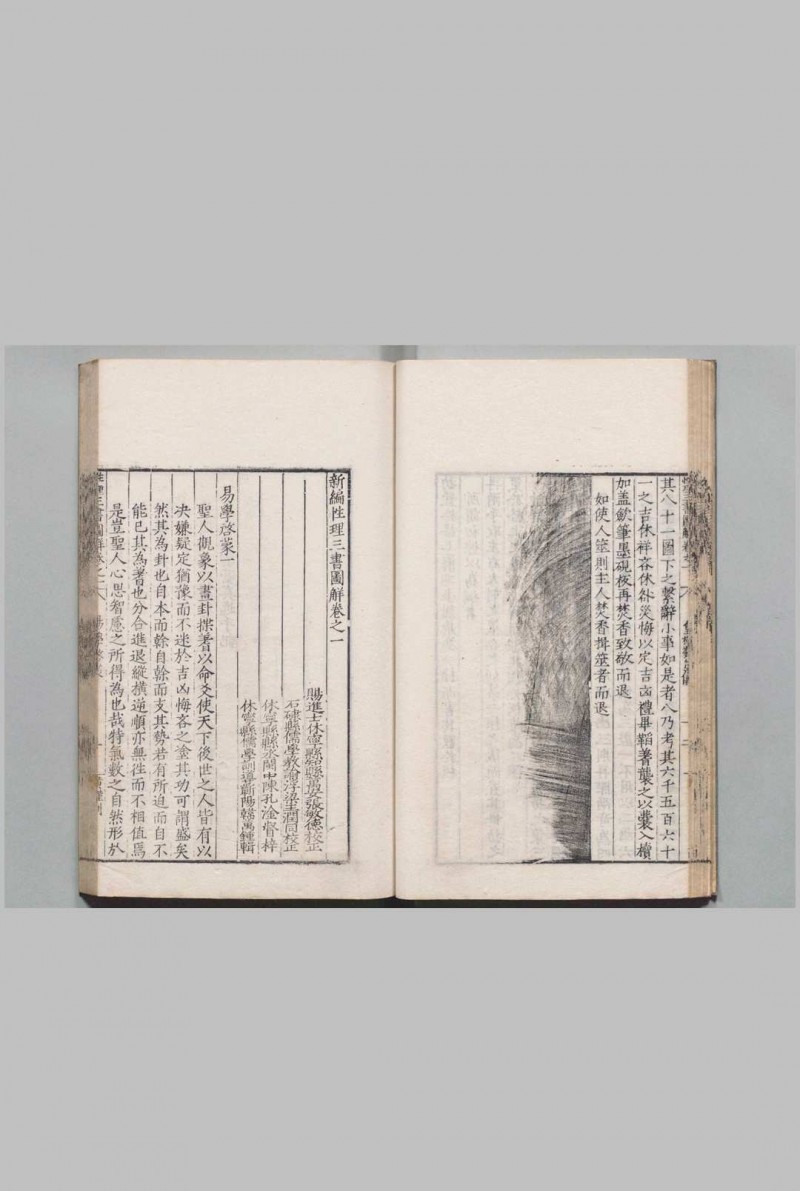 其八十一圖下之繫辭小事如是者八乃考其六千五百六十
一之吉休祥吝休咎災悔以定吉凶禮畢韜蓍襲之以囊入櫝
加盖歛筆墨硯板再焚香致敬而退
如使人筮則主人焚香揖筮者而退
新編性理三書圖解卷之一
賜進士休寧縣知縣張敏德校正
石埭縣儒學教諭浮梁潤同校正
休寧縣縣丞閩中陳孔淦督梓
休寧縣儒學訓導莆陽萬鍾輯
易學啓蒙一
聖人觀象以畫卦揲蓍以命爻使天下後世之人皆有以
决嫌疑定猶豫而不迷於吉凶悔吝之塗其功可謂盛矣
然其為卦也自本而幹自幹而支其勢若有所迫而自不
能已其為蓍也分合進退縱橫逆順亦無徃而不相值焉
是豈聖人心思智慮之所得為也哉特氣數之自然形於